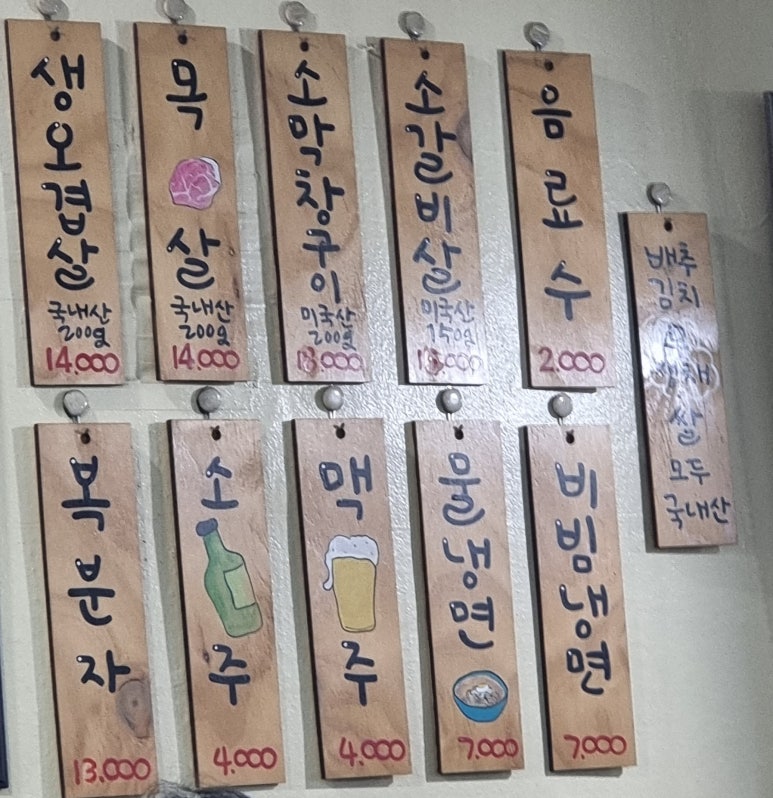 생오겹살
국내산
200g
14.000
목살
국내산
200g
14.000
소막창구이
미국산
200g
18.000
소갈비살
미국산
150g
음료수
2.000
배추
김치
쌀
모두
국내산
복분자
13.000
소주
4.000
맥주
4.000
물냉면
7.000
비빔냉면
7.000